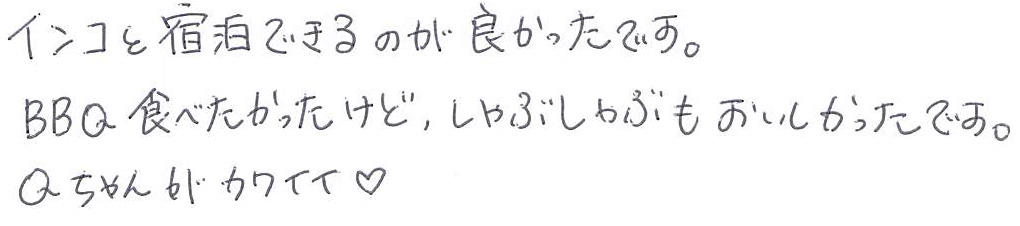 インコと宿泊できるのが良かったです。
BBQ食べたかったけど,しゃぶしゃぶもおいしかったです。
Qちゃんがカワイイ♡